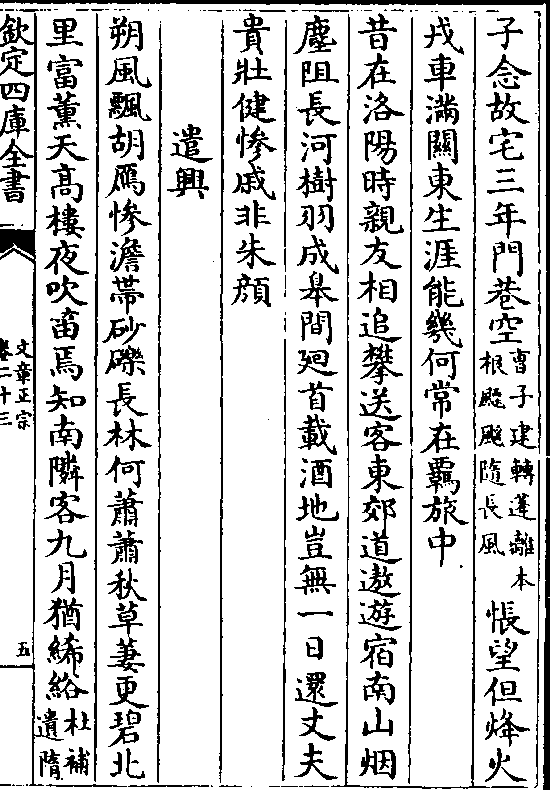 子念故宅三年門巷空曹子建轉蓬離本根飃颻隨長風悵望但烽火
戎車滿關東生涯能幾何常在羈旅中
昔在洛陽時親友相追攀送客東郊道遨遊宿南山烟
塵阻長河樹羽成皋間廻首載酒地豈無一日還丈夫
貴壯健慘戚非朱顔
遣興
朔風飄胡鴈慘澹帶砂礫長林何蕭蕭秋草萋更碧北
里富薰天髙樓夜吹笛焉知南隣客九月猶絺綌杜補遺隋
欽定四庫全書
文章正宗
卷二十三
五